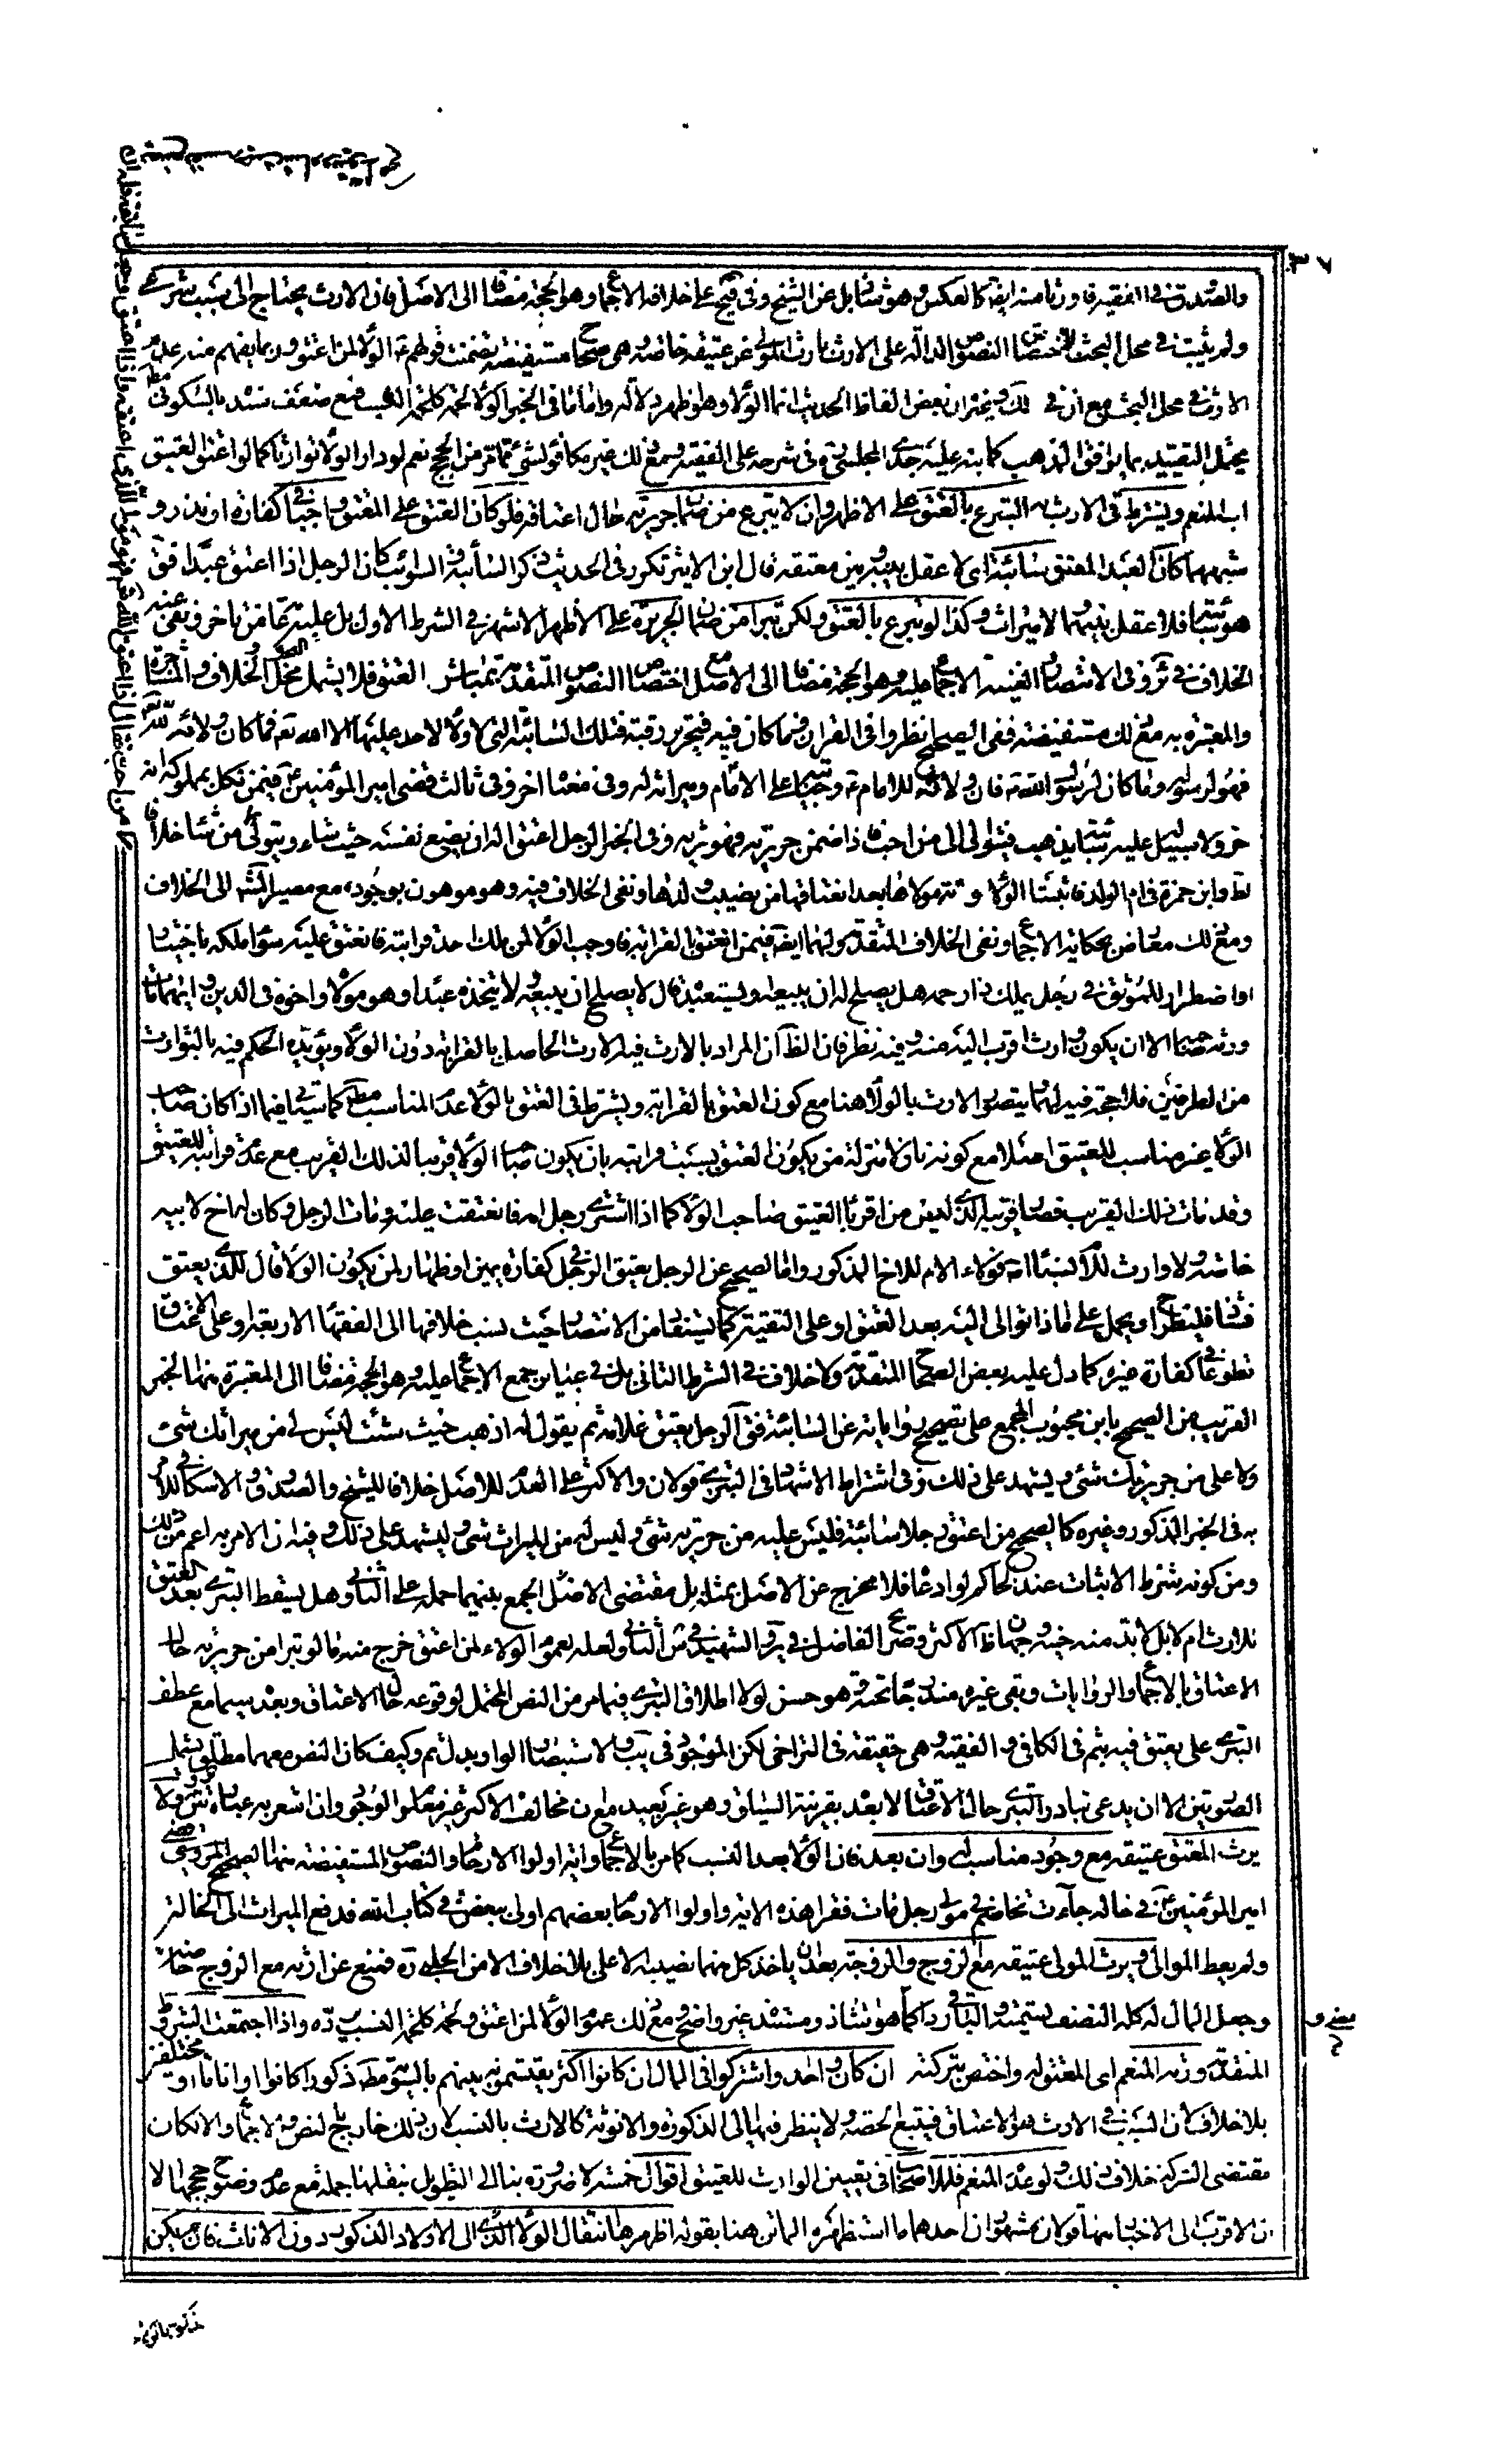 والصدوق في الفقيه فاورثا منه ايضا كالعكس وهو شاذ بل عن الشيخ وفي يج على خلافه الاجماع وهو الحجة مضافا الى الاصل فان الارث يحتاج الى سبب شرعي
ولم يثبت في محل البحث لاختصاص النصوص الدالة على الارث بارث المولى عن عتيقه خاصة وهي صحاح مستفيضة تضمنت قولهم ع الولاء لمن اعتق وربما يفهم منه عدم
الارث في محل البحث مع ان في ذلك وغيره ان بعض الفاظ الحديث انما الولاء وهو اظهر دلالة واما ما في الخبر الولاء لحمة كلحمة النسب فمع ضعف سنده بالسكوني
يحتمل التقييد بما يوافق المذهب كما نبه عليه جدي المجلسي ره في شرحه على الفقيه ومع ذلك غير مكافؤ لشئ مما مر من الحجج نعم لو دار الولاء توارثا كما لو اعتق العتيق
اب المنعم ويشترط في الارث به التبرع بالعتق على الاظهر وان لا يتبرء من ضمان جريرته حال اعتاقه فلو كان العتق على المعتق واجبا في كفارة او نذر و
شبههما كان العبد المعتق سائبة اى لا عقل بينه وبين معتقه قال ابن الاثير تكرر في الحديث ذكر السائبة والسوائب كان الرجل اذا اعتق عبدا فق
هو سائبة فلا عقل بينهما ولا ميراث وكذا لو تبرع بالعتق ولكن تبرا من ضمان الجريرة على الاظهر الاشهر في الشرط الاول بل عليه عامة من تاخر ونفى عنه
الخلاف في ئر وفي الانتصار والغنية الاجماع عليه وهو الحجة مضافا الى الاصل مع اختصاص النصوص المتقدمة بمباشر العتق فلا يشمل محل الخلاف
والمعتبرة به مع ذلك مستفيضة ففي الصحيح انظروا في القران فما كان فيه فتحرير رقبة فتلك السائبة التي لا ولاء لاحد عليها الا الله تع فما كان ولائه لله
فهو لرسوله وما كان لرسول الله ص فان ولائه للامام ع وجنايته على الامام وميراثه له وفي معناه اخر وفي ثالث قضى امير المؤمنين ع فيمن نكل بمملوكه انه
حر ولا سبيل عليه سائبة يذهب فيتولى الى من احب فاذا ضمن جريرته فهو يرثه وفي الخبر الرجل اعتق اله ان يضع نفسه حيث شاء ويتولى من شاء خلافا
لط وابن حمزة في ام الولد فاثبتا الولاء لورثة مولاها بعد انعتاقها من نصيب ولدها ونفى الخلاف فيه وهو موهون بوجوده مع مصير الى الخلاف
ومع ذلك معارض بحكاية الاجماع ونفى الخلاف المتقدمة ولهما ايضا فيمن انعتق بالقرابة فاوجب الولاء لمن ملك احد قرابته فانعتق عليه سواء ملكه باختياره
او اضطرارا للموثق في رجل يملك ذا رحمه هل يصلح له ان يبيعه او يستعبده قال لا يصلح ان يبيعه ولا يتخذه عبدا وهو مولاه واخوه في الدين وايهما مات
ورثه صاحبه الا ان يكون وارث اقرب اليه منه وفيه نظر فان الظ ان المراد بالارث فيه الارث الحاصل بالقرابة دون الولاء ويؤيده الحكم فيه بالتوارث
من الطرفين فلا حجة فيه لهما يتصور الارث بالولاء هنا مع كون العتق بالقرابة ويشترط في العتق بالولاء عدم المناسب مط كما سياتي فيما اذا كان صاحب
الولاء غير مناسب للعتيق اصلا مع كونه نازلا منزلة من يكون العتق بسبب قرابته بان يكون صاحب الولاء قريبا لذلك القريب مع عدم قرابته للعتيق
وقد مات ذلك القريب فصار قريبه الذي ليس من اقرباء العتيق صاحب الولاء كما اذا اشترى رجل امه فانعتقت عليه ومات الرجل وكان له اخ لابيه
خاصة ولا وارث للام نسبا فولاء الام للاخ المذكور واما الصحيح عن الرجل يعتق الرجل في كفارة يمين او ظهار لمن يكون الولاء قال للذي يعتق
فشاذ فليطرح او يحمل على ما اذا توالى اليه بعد العتق او على التقية كما يستفاد من الانتصار حيث نسب خلافها الى الفقهاء الاربعة وعلى الاعتاق
تطوعا في كفارة غيره كما دل عليه بعض الصحاح المتقدمة ولا خلاف في الشرط الثاني بل في عبائر جمع الاجماع عليه وهو الحجة مضافا الى المعتبرة منها الخبر
القريب من الصحيح بابن محبوب المجمع على تصحيح رواياته عن السائبة فق الرجل يعتق غلامه ثم يقول له اذهب حيث شئت ليس لي من ميراثك شئ
ولا على من جريرتك شئ ويشهد على ذلك وفي اشتراط الاشهاد في التبرى قولان والاكثر على العدم للاصل خلافا للشيخ والصدوق والاسكافي للامر
به في الخبر المذكور وغيره كالصحيح من اعتق رجلا سائبة فليس عليه من جريرته شئ وليس له من الميراث شئ وليشهد على ذلك وفيه ان الامر به اعم من ذلك
ومن كونه شرط الاثبات عند الحاكم لو ادعاه فلا مخرج عن الاصل بمثله بل مقتضى الاصل الجمع بينهما حمله على الثاني وهل يسقط التبرى بعد العتق
للارث ام لا بل لا بد منه حينه وجهان ظاهر الاكثر وصريح الفاضل في ير والشهيد في س الثاني ولعله بعموم الولاء لمن اعتق خرج منه ما لو تبرا من جريرته حال
الاعتاق بالاجماع والروايات وبقى غيره مندرجا تحته وهو حسن لولا اطلاق التبرى فيما مر من النص المحتمل لوقوعه حال الاعتاق وبعده سيما مع عطف
التبرى على يعتق فيه بثم في الكافي والفقيه وهي حقيقة في التراخي لكن الموجود في يب والاستبصار الواو بدل ثم وكيف كان النص معهما مطلق يشمل
الصورتين الا ان يدعى تبادر التبرى حال الاعتاق لا بعده بقرينة السياق وهو غير بعيد مع ان مخالف الاكثر غير معلوم الوجود وان اشعر به عبارة ولا
يرث المعتق عتيقه مع وجود مناسب له وان بعد فان الولاء بعد النسب كما مر بالاجماع واية اولوا الارحام والنصوص المستفيضة منها الصحيح المروي قضى
امير المؤمنين ع في خالة جائت تخاصم في مولى رجل مات فقرا هذه الاية واولوا الارحام بعضهم اولى ببعض في كتاب الله فدفع الميراث الى الخالة
ولم يعط الموالى ويرث المولى عتيقه مع الزوج والزوجة بعد ان ياخذ كل منهما نصيبه الاعلى بلا خلاف الا من الحلبي ره فمنع عن ارثه مع الزوج خاصة
وجعل المال له كله النصف تسمية والباقي ردا كما هو شاذ ومستنده غير واضح ومع ذلك عموم الولاء لمن اعتق ولحمة كلحمة النسب يرده واذا اجتمعت الشروط
المتقدمة ورثه المنعم اى المعتق له واختص بتركته ان كان واحدا واشتركوا في المال ان كانوا اكثر يقتسمونه بينهم بالسوية مط ذكورا كانوا او اناثا او مختلفين
بلا خلاف لان السبب في الارث هو الاعتاق فيتبع الحصة ولا ينظر فيها الى الذكورة والانوثة كالارث بالنسب لان ذلك خارج بالنص والاجماع والا لكان
مقتضى الشركة خلاف ذلك ولو عدم المنعم فللاصحاب في تعيين الوارث للعتيق اقوال خمسة لا ضرورة بنا الى التطويل بنقلها جملة مع عدم وضوح حججها الا
ان الاقرب الى الاخبار منها قولان مشهوران احدهما ما استظهره الماتن هنا بقوله اظهرها انتقال الولاء الى الاولاد الذكور دون الاناث فان لم يكن